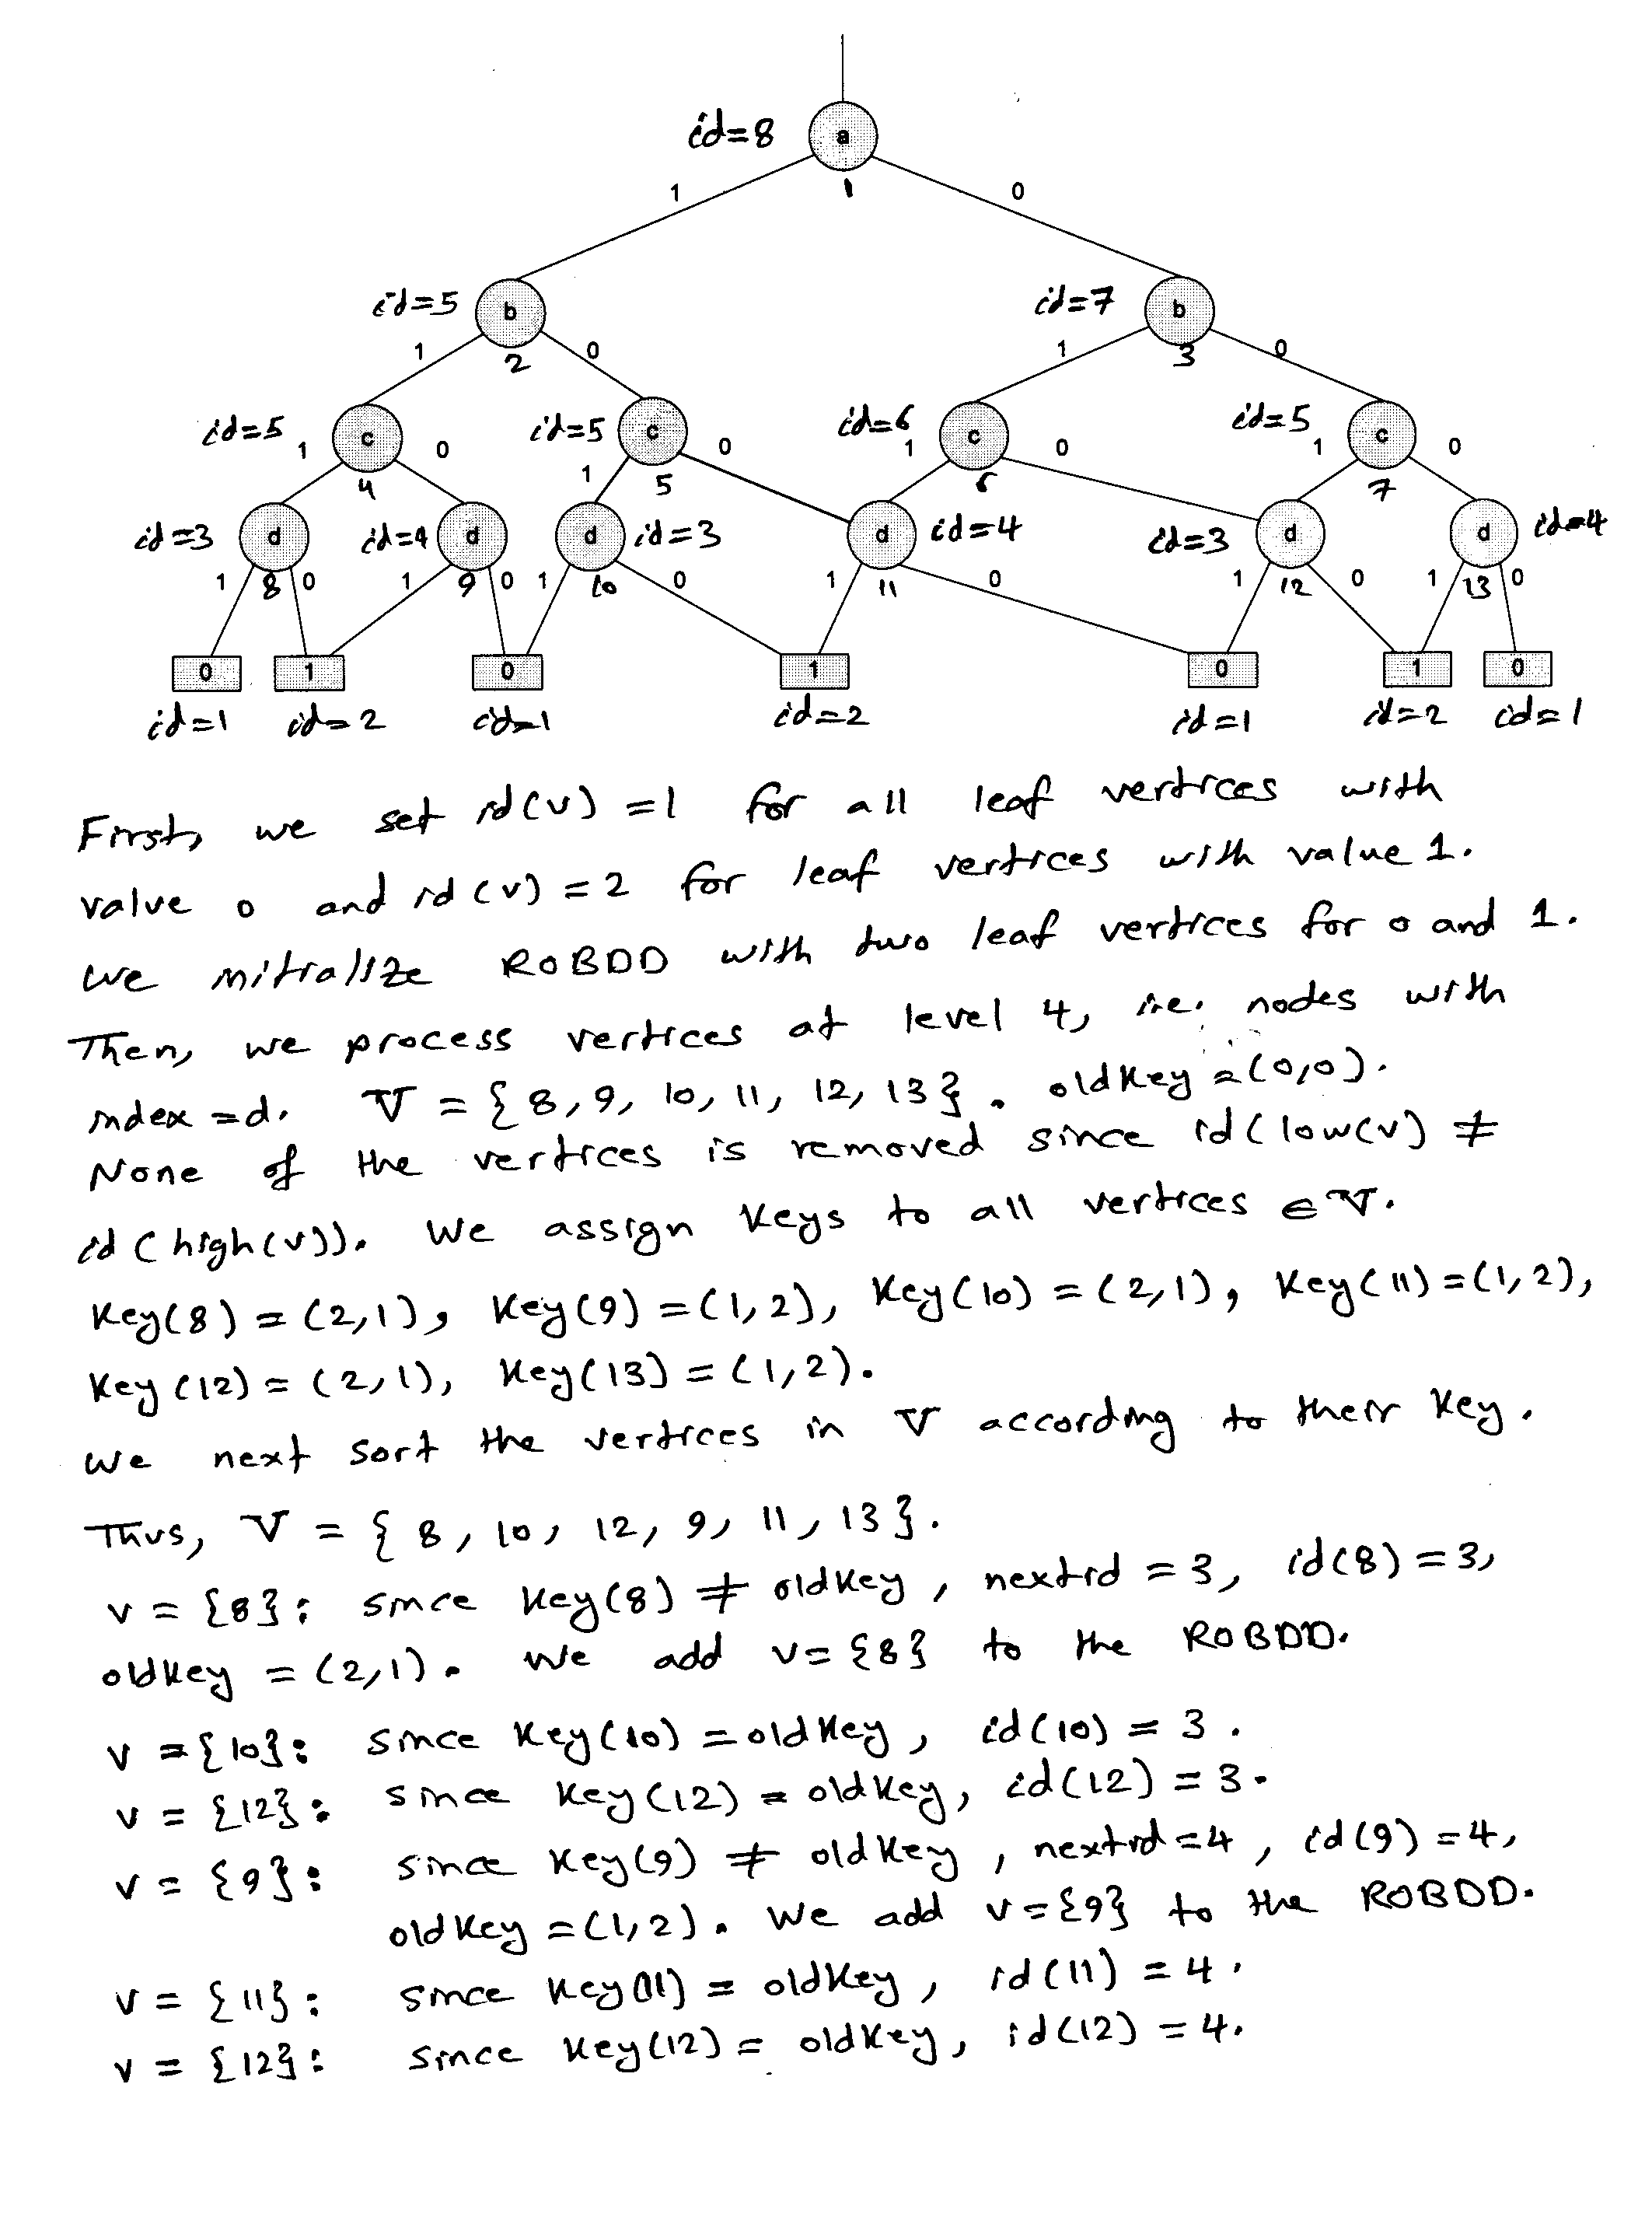 id=8 a
1 1 0
id=5 b id=7 b
1 2 0 1 3 0
id=5 1 c 0 id=5 c 0 id=6 1 c 0 id=5 1 c 0
4 1 5 6 7
id=3 d id=4 d d id=3 d id=4 id=3 d d id=4
1 8 0 1 9 0 1 10 0 1 11 0 1 12 0 1 13 0
0 1 0 1 0 1 0
id=1 id=2 id=1 id=2 id=1 id=2 id=1
First, we set id(v) =1 for all leaf vertices with
value 0 and id(v) = 2 for leaf vertices with value 1.
we initialize ROBDD with two leaf vertices for 0 and 1.
Then, we process vertices at level 4, i.e. nodes with
index =d. V = { 8, 9, 10, 11, 12, 13 }. oldkey = (0,0).
None of the vertices is removed since id(low(v) ≠
id(high(v)). We assign keys to all vertices ∈ V.
Key(8) = (2,1), Key(9) = (1,2), Key(10) = (2,1), Key(11) = (1,2),
Key(12) = (2,1), Key(13) = (1,2).
we next sort the vertices in V according to their key.
Thus, V = { 8, 10, 12, 9, 11, 13 }.
v = {8}: since Key(8) ≠ oldkey, nextid = 3, id(8) = 3,
oldkey = (2,1). We add v= {8} to the ROBDD.
v = {10}: since Key(10) = oldkey, id(10) = 3.
v = {12}: since Key(12) = oldkey, id(12) = 3.
v = {9}: since Key(9) ≠ oldkey, nextid = 4, id(9) = 4,
oldkey = (1,2). We add v={9} to the ROBDD.
v = {11}: since Key(11) = oldkey, id(11) = 4.
v = {12}: since Key(12) = oldkey, id(12) = 4.